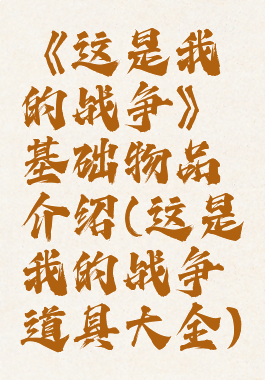 《这是我
的战争》
基础物品
介绍(这是
我的战争
道具大全)